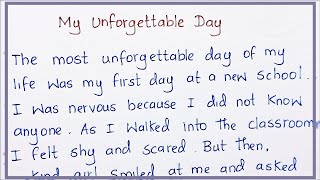 My Unforgettable Day
The most unforgettable day of my
life was my first day at a new school.
I was nervous because I did not know
anyone. As I walked into the classroom
I felt shy and scared. But then,
kind girl smiled at me and asked